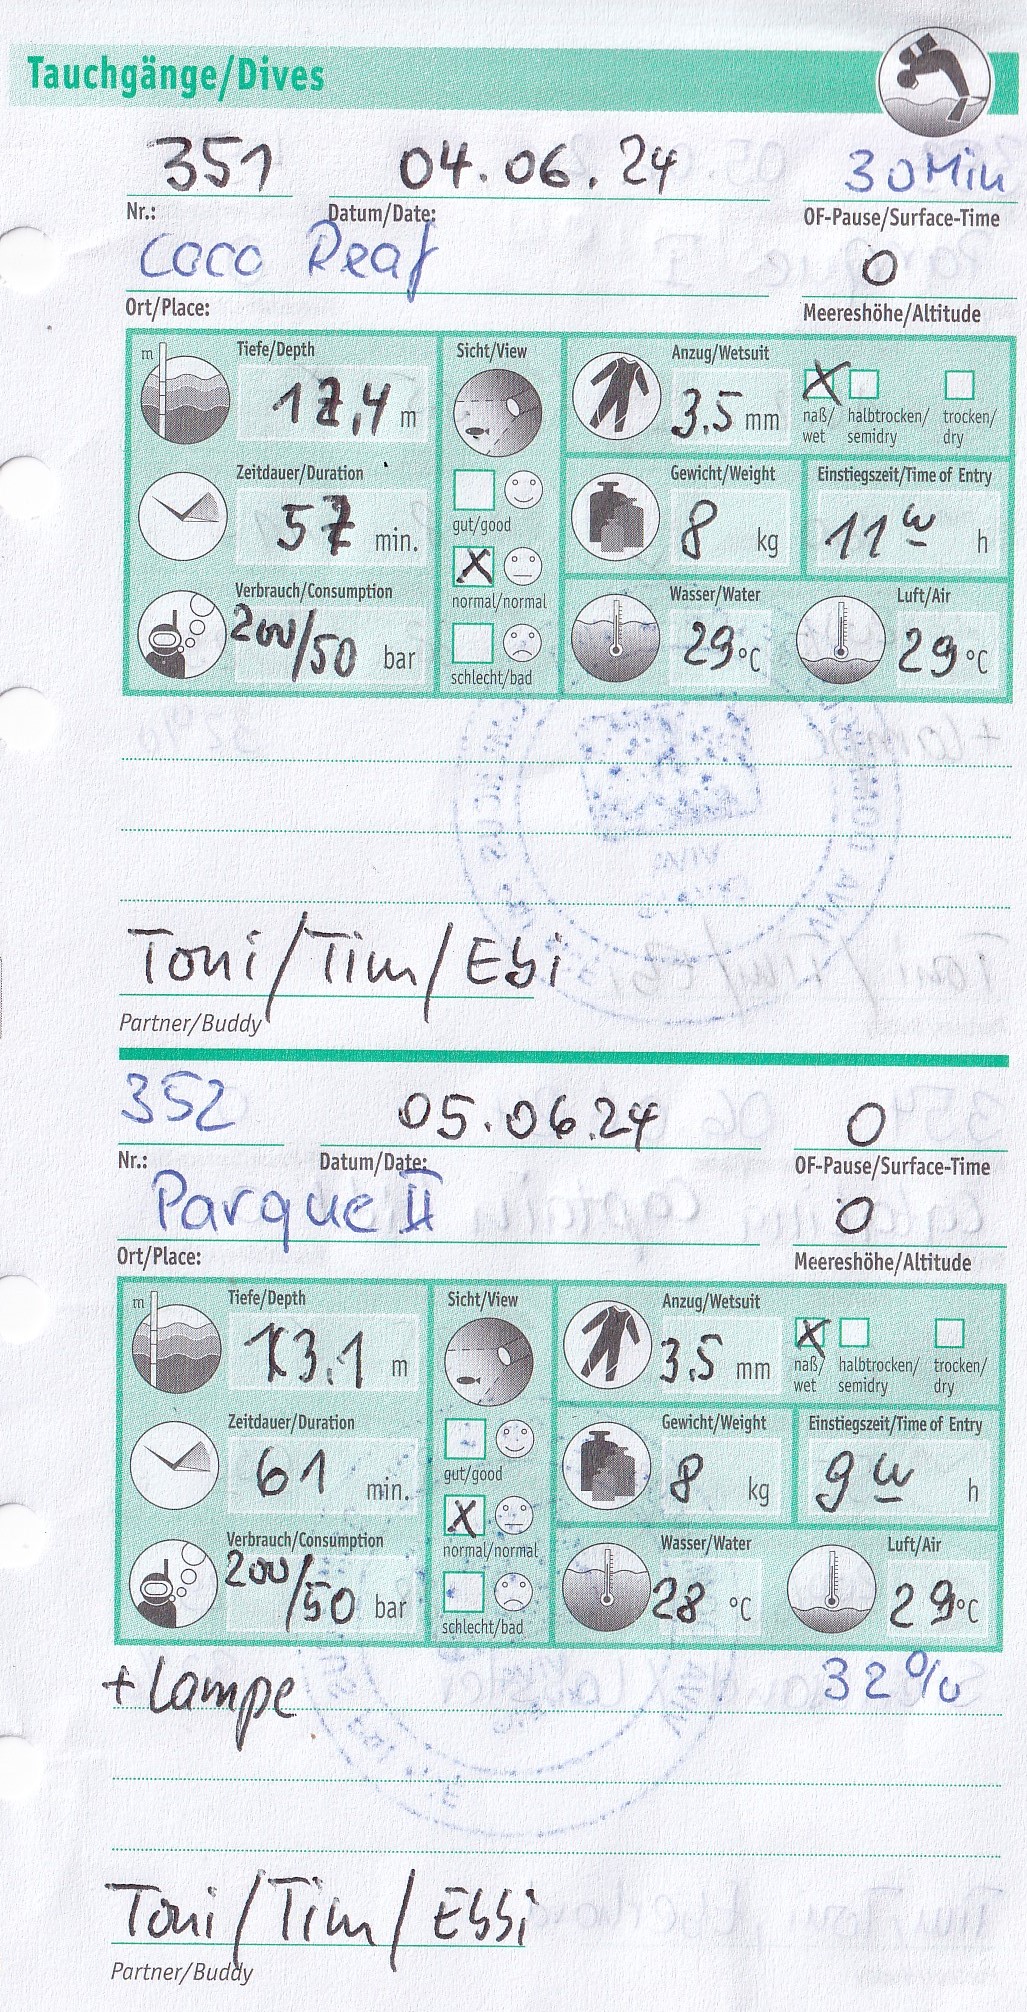 Tauchgänge/Dives
351 04.06.24 30 Min
Nr.: Datum/Date: OF-Pause/Surface-Time
Coco Reaf 0
Ort/Place: Meereshöhe/Altitude
m Tiefe/Depth Sicht/View Anzug/Wetsuit
17,4 m 3.5 mm X
naß/ halbtrocken/ trocken/
wet semidry dry
Zeitdauer/Duration Gewicht/Weight Einstiegszeit/Time of Entry
57 min. gut/good 8 kg 11 00 h
X normal/normal
Verbrauch/Consumption Wasser/Water Luft/Air
200/50 bar 29 °C 29 °C
schlecht/bad
Toni/Tim/Ebi
Partner/Buddy
352 05.06.24 0
Nr.: Datum/Date: OF-Pause/Surface-Time
Parque II 0
Ort/Place: Meereshöhe/Altitude
m Tiefe/Depth Sicht/View Anzug/Wetsuit
13.1 m 3.5 mm X
naß/ halbtrocken/ trocken/
wet semidry dry
Zeitdauer/Duration Gewicht/Weight Einstiegszeit/Time of Entry
61 min. gut/good 8 kg 9 00 h
X normal/normal
Verbrauch/Consumption Wasser/Water Luft/Air
200/50 bar 28 °C 29 °C
schlecht/bad
+ Lampe 32%
Toni/Tim/Ebbi
Partner/Buddy